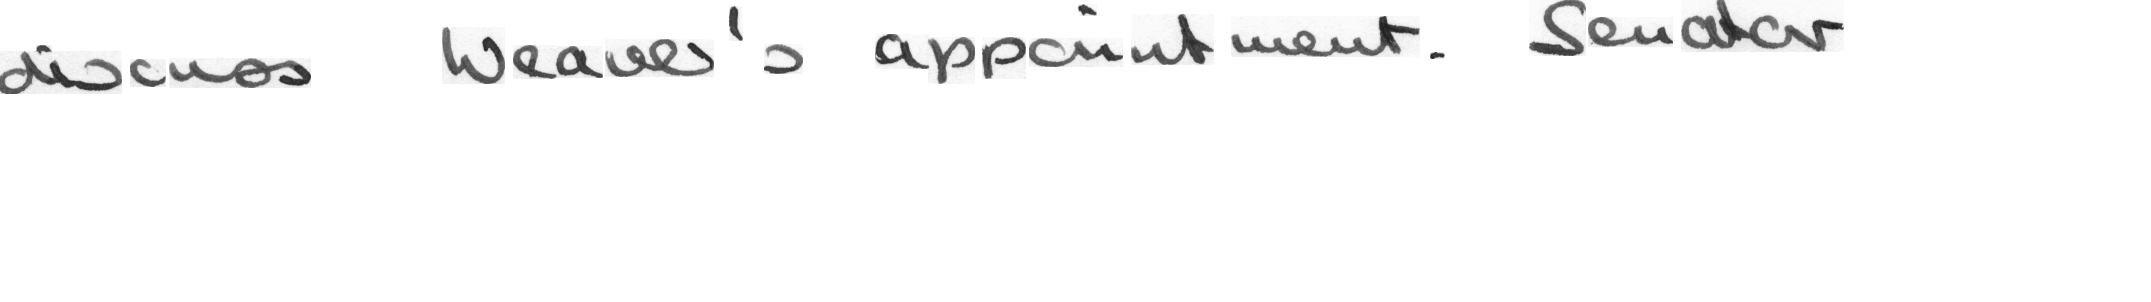 discuss Weaver's appointment. Senator